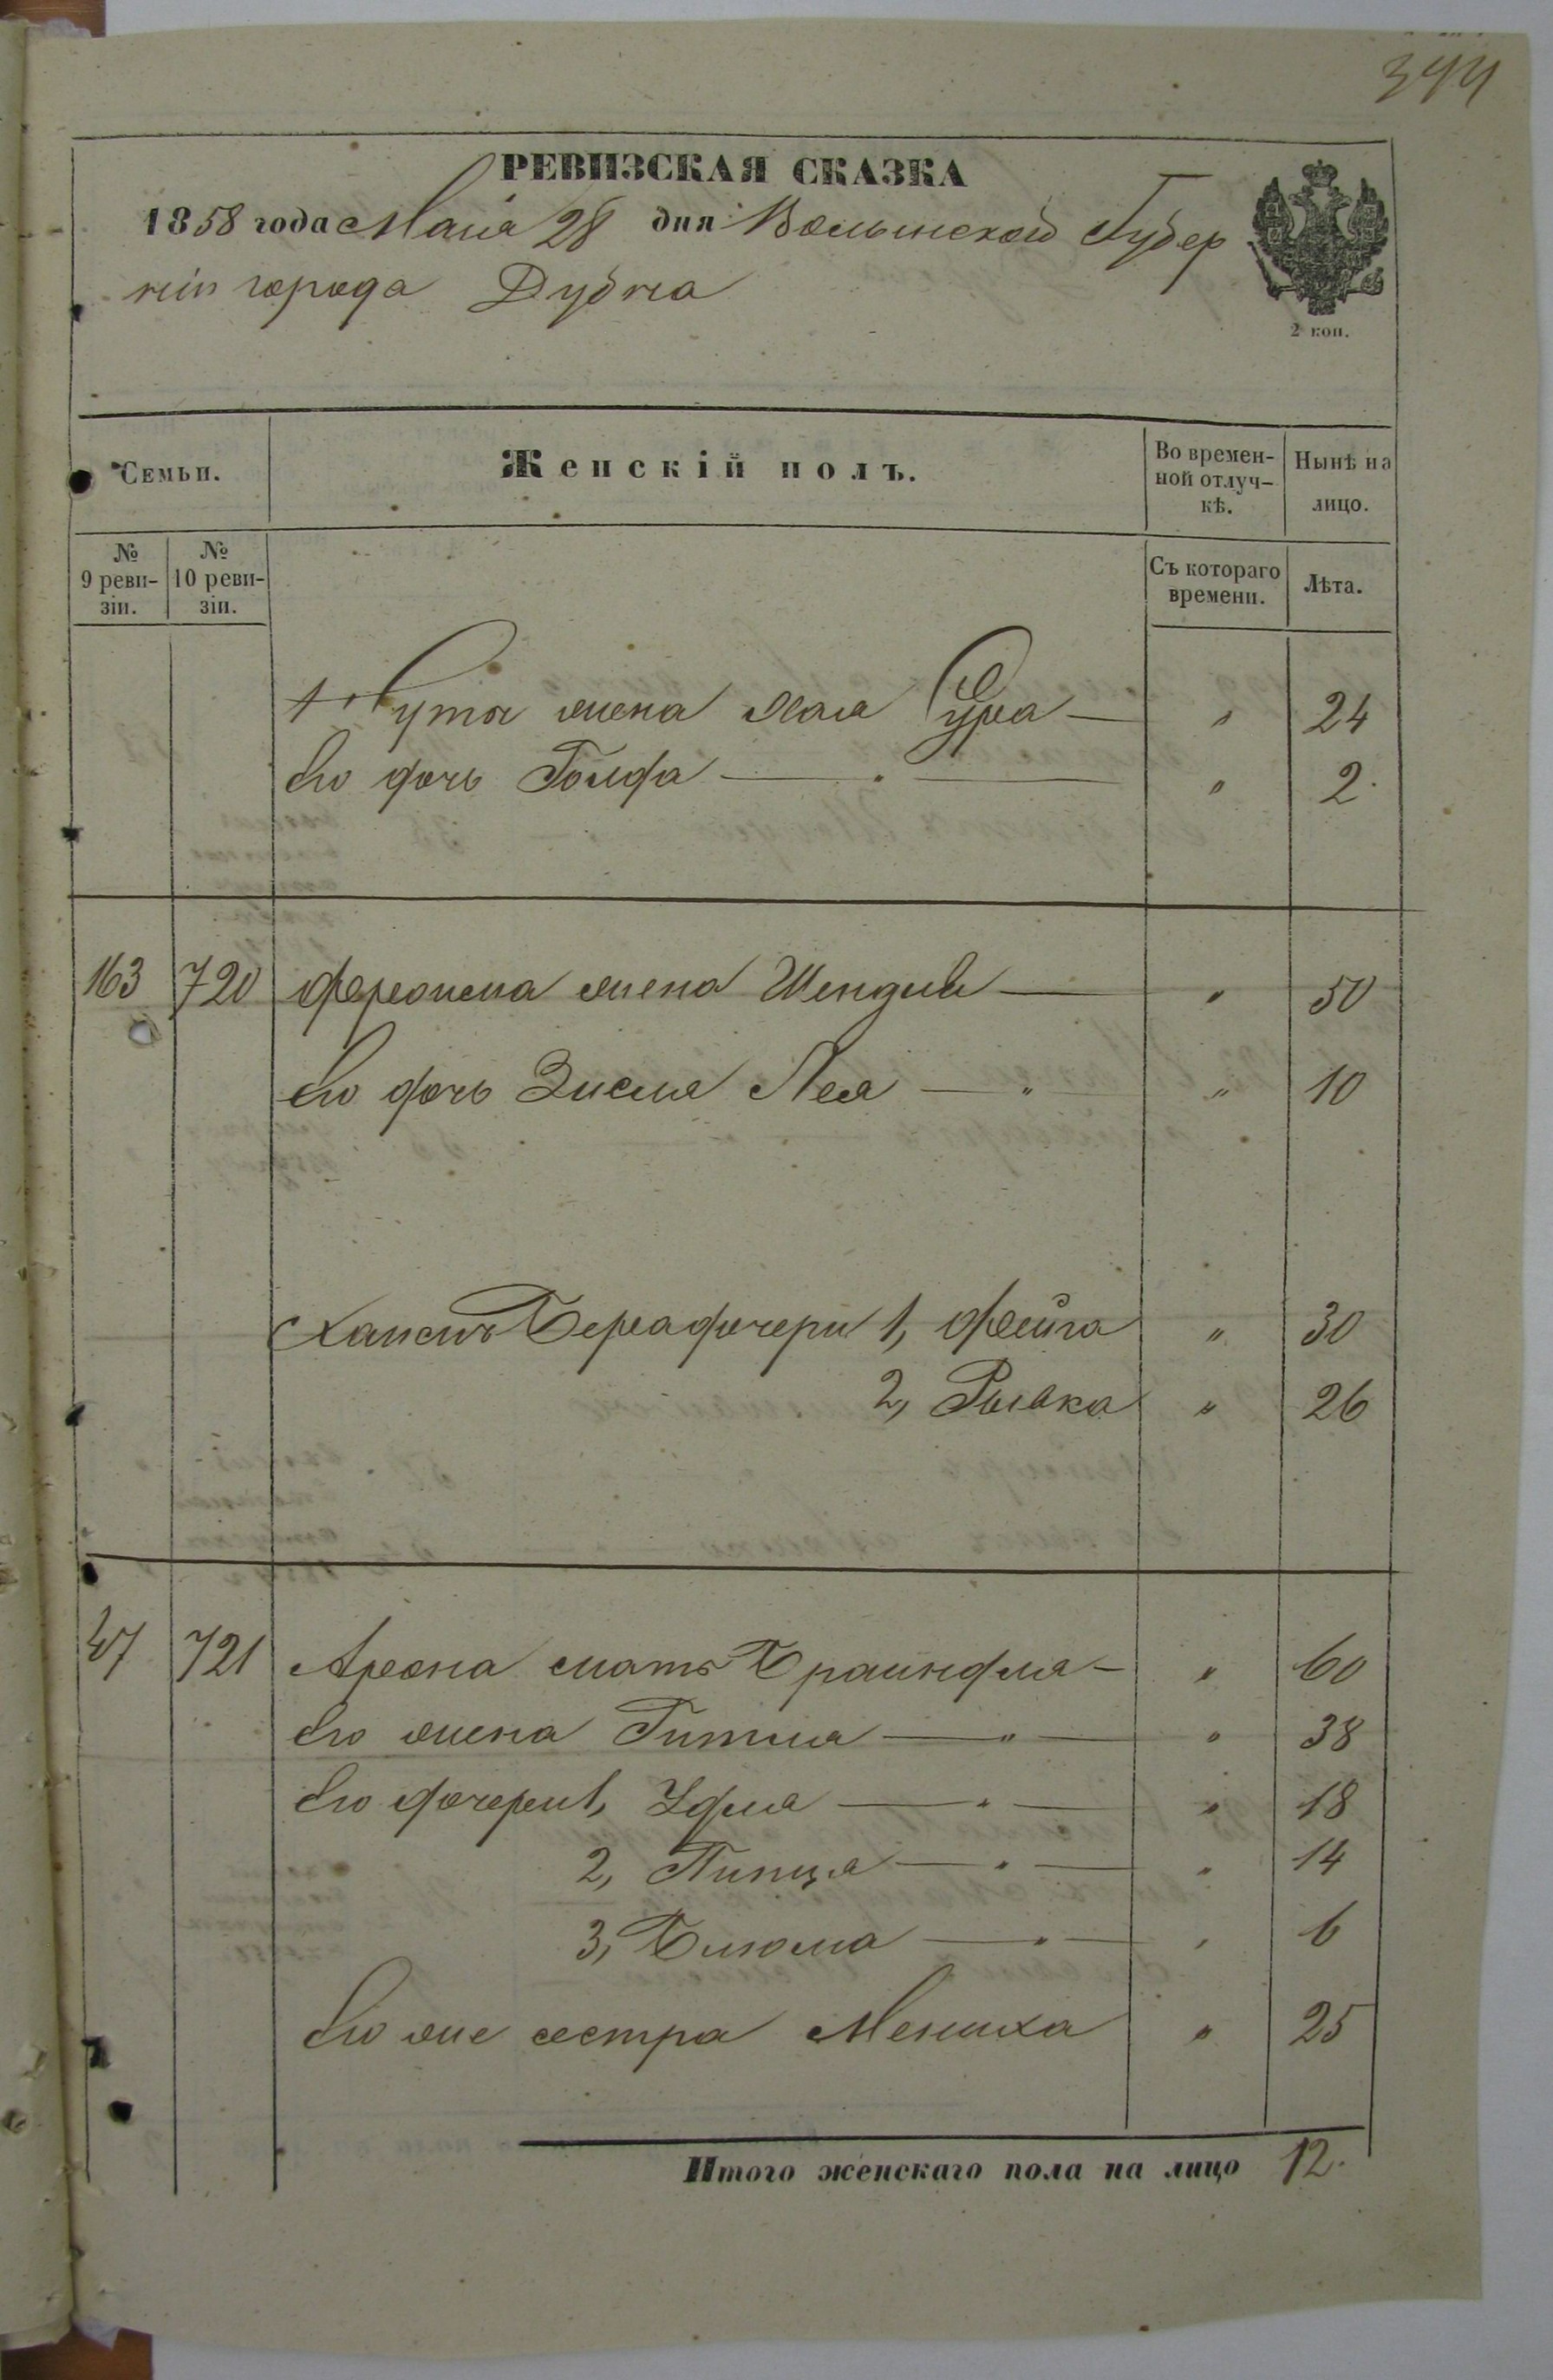 344
РЕВИЗСКАЯ СКАЗКА
1858 года Маія 28 дня Волынской Губер
ніи города Дубна
2 коп.
Семьи.
Женскій полъ.
Во времен-
ной отлуч-
кѣ.
Нынѣ на
лицо.
№
9 реви-
зіи.
№
10 реви-
зіи.
Съ котораго
времени.
Лѣта.
жена Хая Сура — " 24
Его дочь Гольда — " — " 2.
163 720 жена Шендля — " 50
Его дочь Зисля Лея — " " 10
Бера дочери 1, Фейга " 30
2, Рывка " 26
47 721 Арона мать Браиндля — " 60
Его жена Гитля — " — " 38
Его дочери 1, Удля — " — " 18
2, Пипця — " — " 14
3, Блюма — " — " 6
Его же сестра Мениха " 25
Итого женскаго пола на лицо 12.